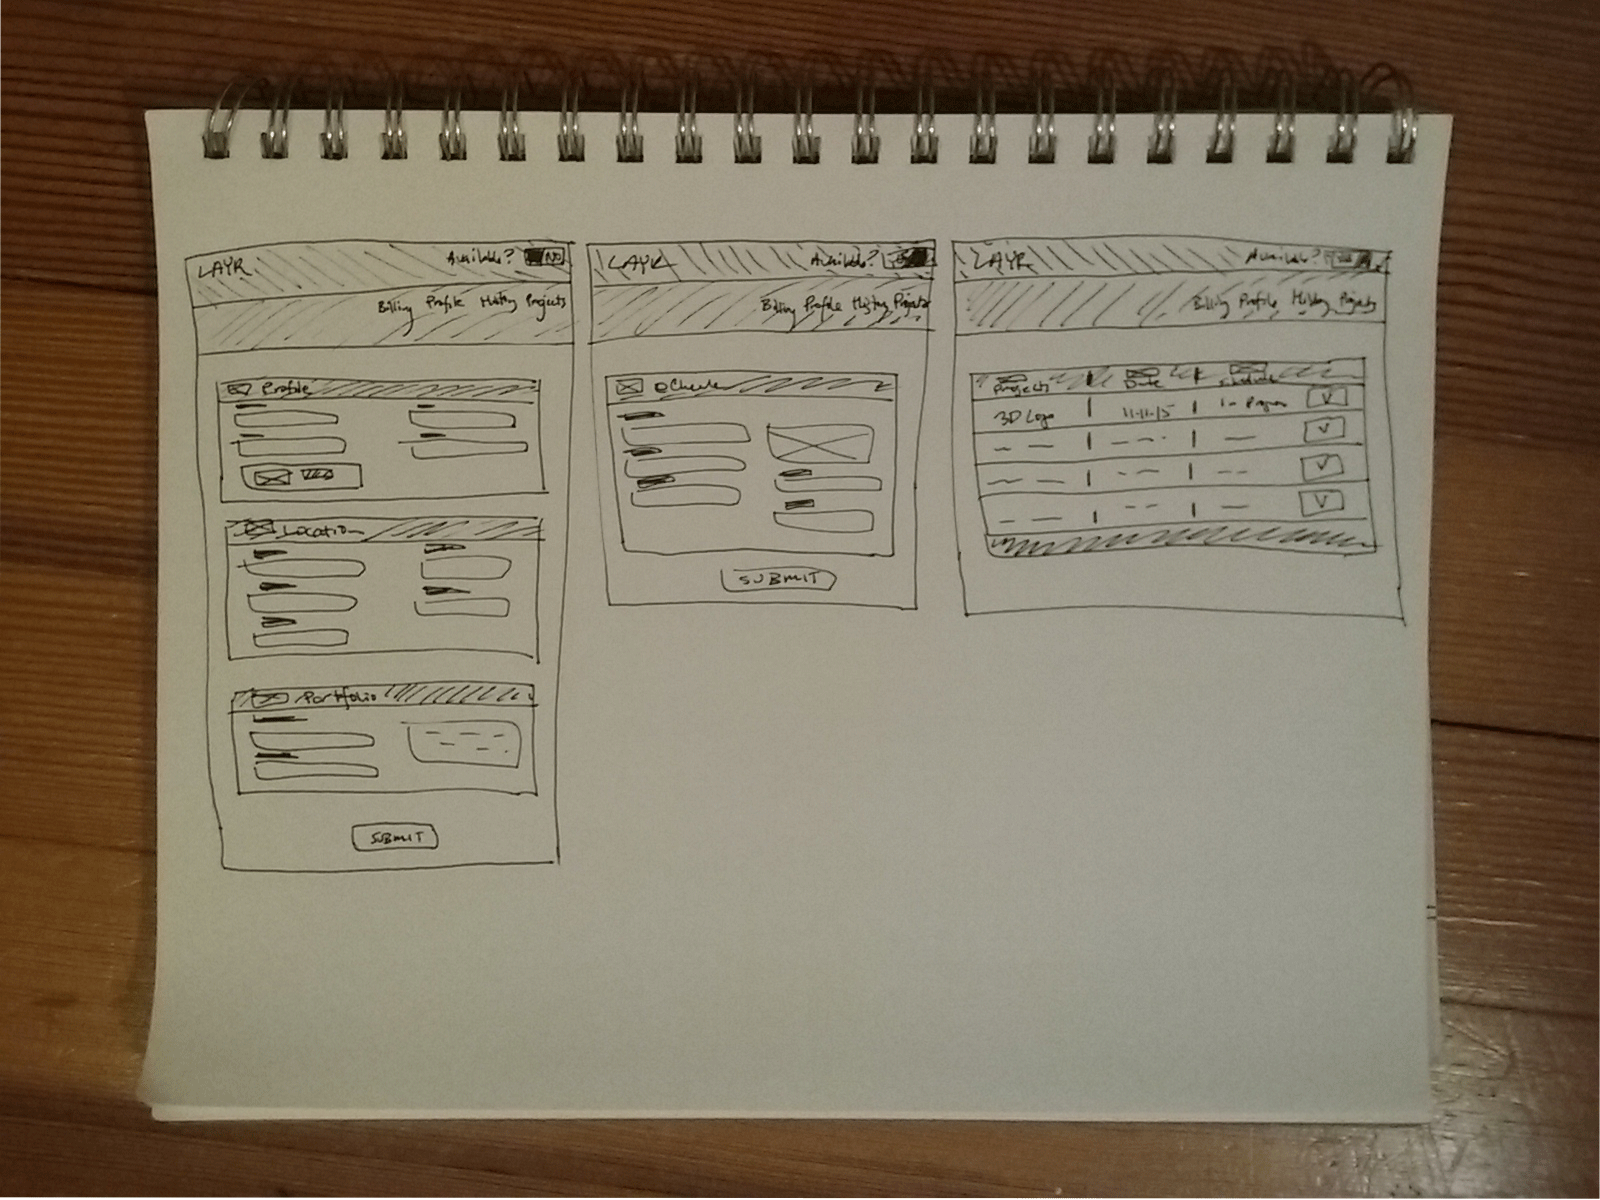 LAYR Available? NO
Billing Profile History Projects
Profile
Location
Portfolio
SUBMIT
LAYR Available?
Billing Profile History Projects
SUBMIT
LAYR Available?
Billing Profile History Projects
Projects Date
3D Logo 11-11-15 In Progress